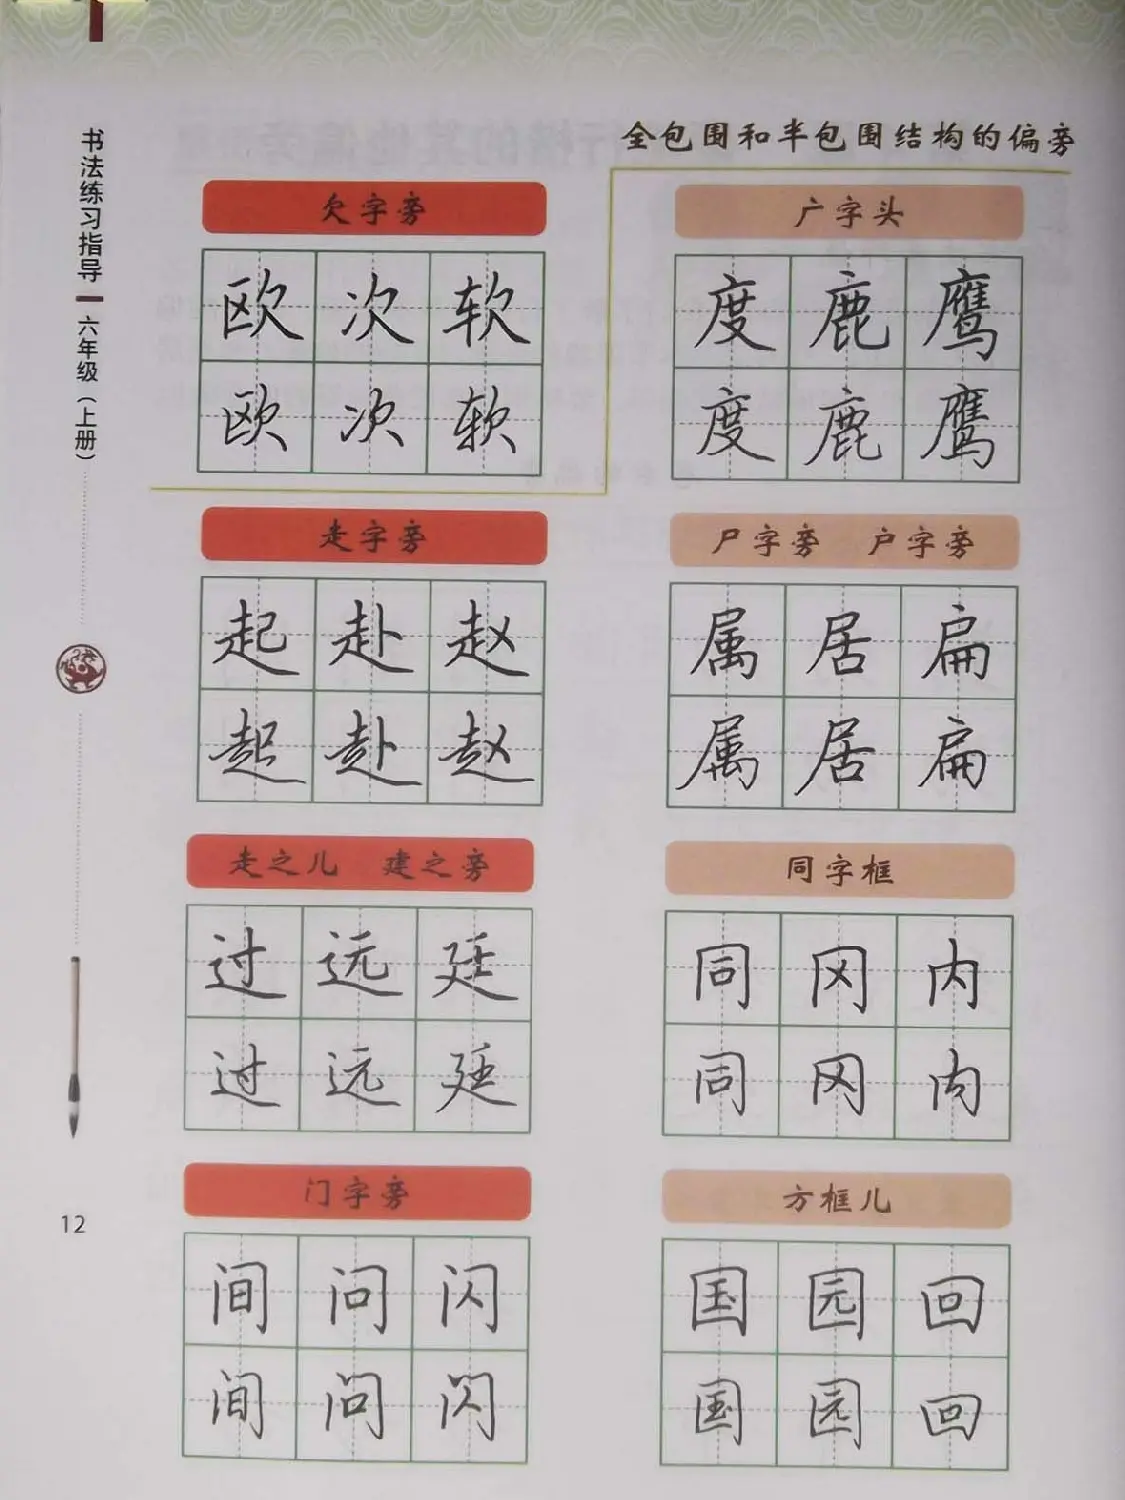 书法练习指导
六年级(上册)
12
欠字旁
欧次软
欧次软
全包围和半包围结构的偏旁
走字旁
起赴赵
起赴赵
走之儿 建之旁
过远廷
过远廷
门字旁
间问闪
间问闪
广字头
度鹿鹰
度鹿鹰
尸字旁 户字旁
属居扁
属居扁
同字框
同冈内
同冈内
方框儿
国园回
国园回